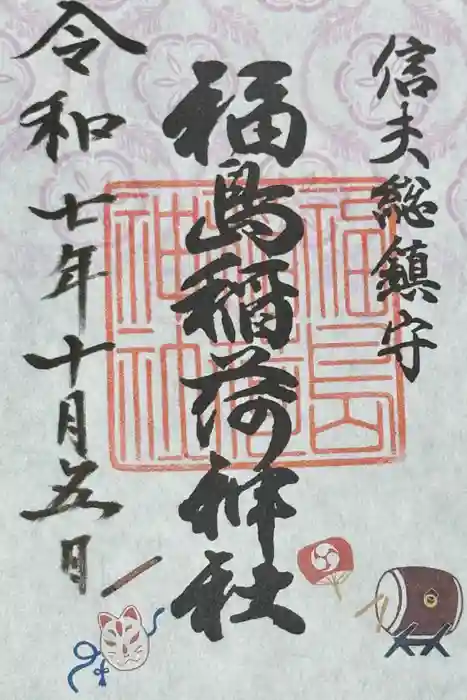 信夫総鎮守
福島稲荷神社
令和七年十月五日
福島稲荷神社